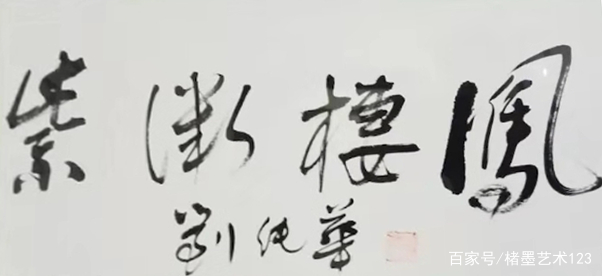 紫微棲鳳
劉純華
百家号/楮墨艺术123